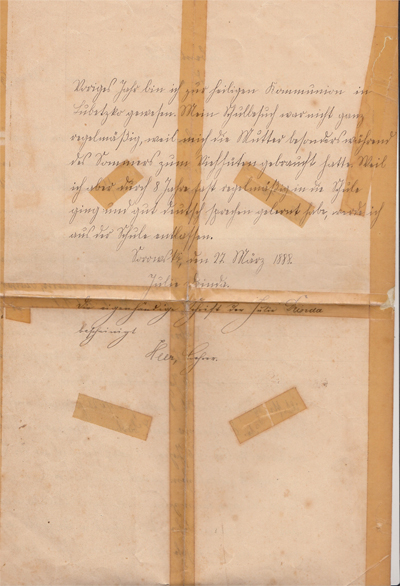 Voriges Jahr bin ich zur heiligen Kommunion in
Lubetzko gewesen. Mein Schulbesuch war nicht ganz
regelmäßig, weil mich die Mutter besonders während
des Sommers zum Viehhüten gebraucht hatte. Weil
ich aber durch 8 Jahre fast regelmäßig in die Schule
ging und gut deutsch sprechen gelernt habe, werde ich
aus der Schule entlassen.
den 27. März
Julie
Die eigenhändige Schrift der Julie
bescheinigt
Lehrer.